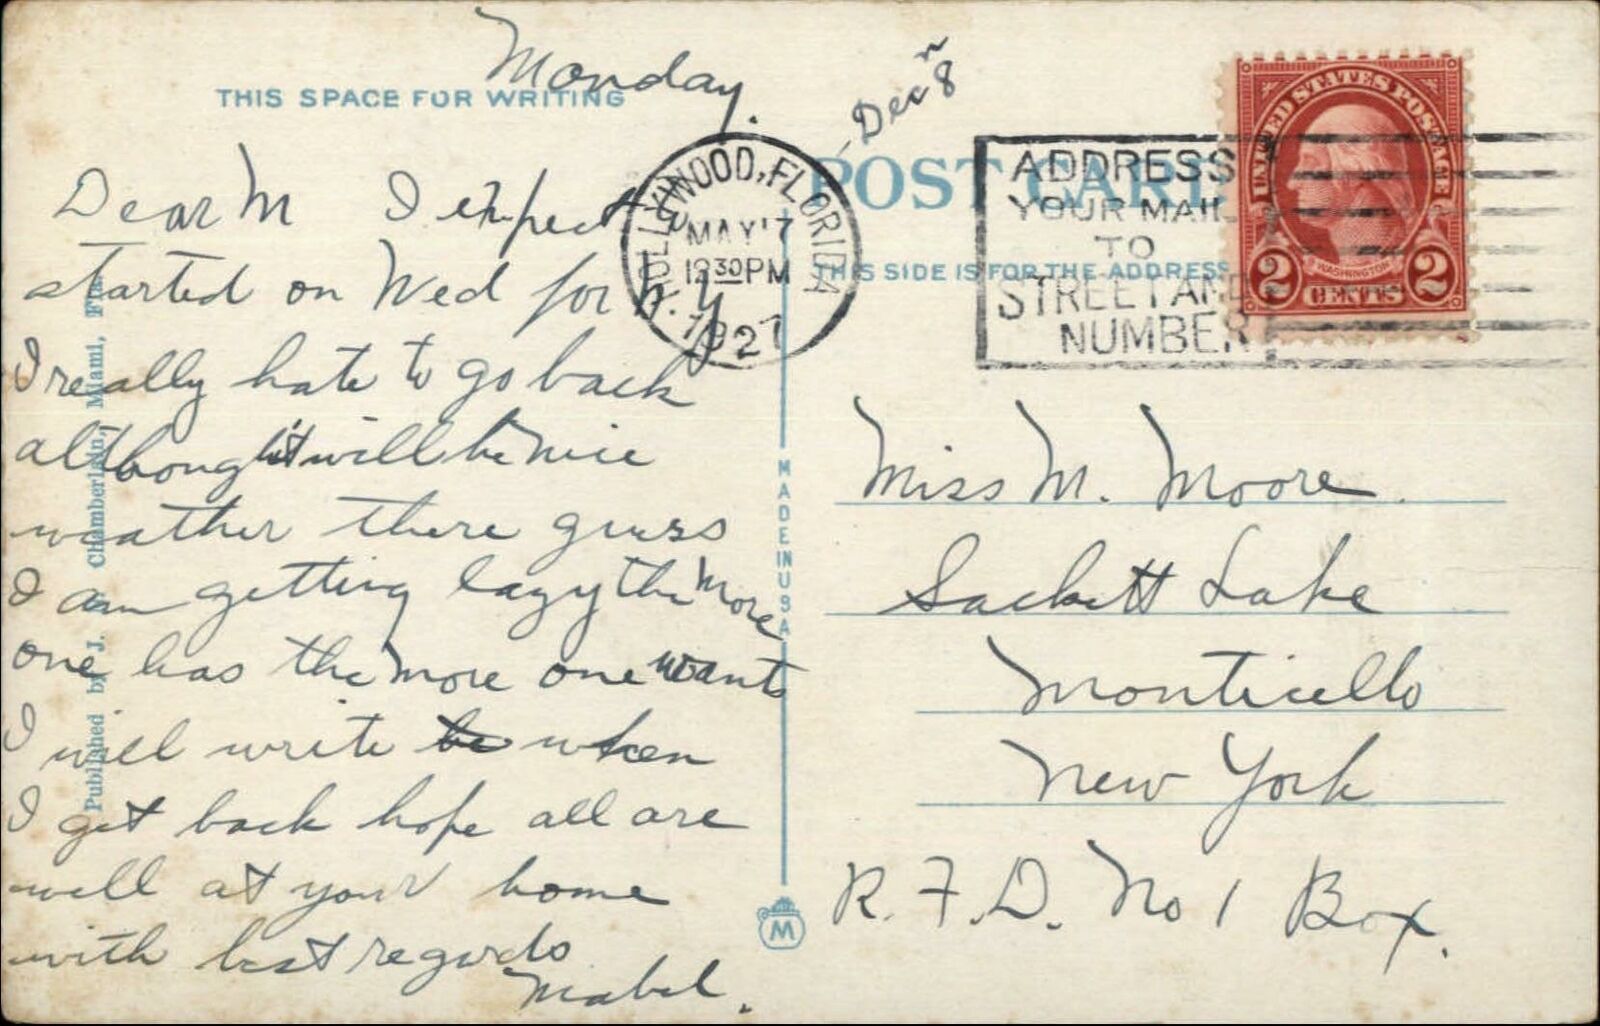 Monday.
THIS SPACE FOR WRITING
Dear M I expect
started on Wed for N.Y
I really hate to go back
although it will be nice
weather there guess
I am getting lazy the more
one has the more one wants
I will write be when
I get back hope all are
well at your home
with best regards
Mabel.
Published by J. Chamberlain, Miami, Fla.
MADE IN USA
M
Dec 8
POST CARD
THIS SIDE IS FOR THE ADDRESS
HOLLYWOOD, FLORIDA
MAY 17
12 30 PM
1927
ADDRESS
YOUR MAIL
TO
STREET AND
NUMBER
UNITED STATES POSTAGE
WASHINGTON
2 CENTS 2
Miss M. Moore.
Sackett Lake
Monticello
New York
R.F.D. No 1 Box.